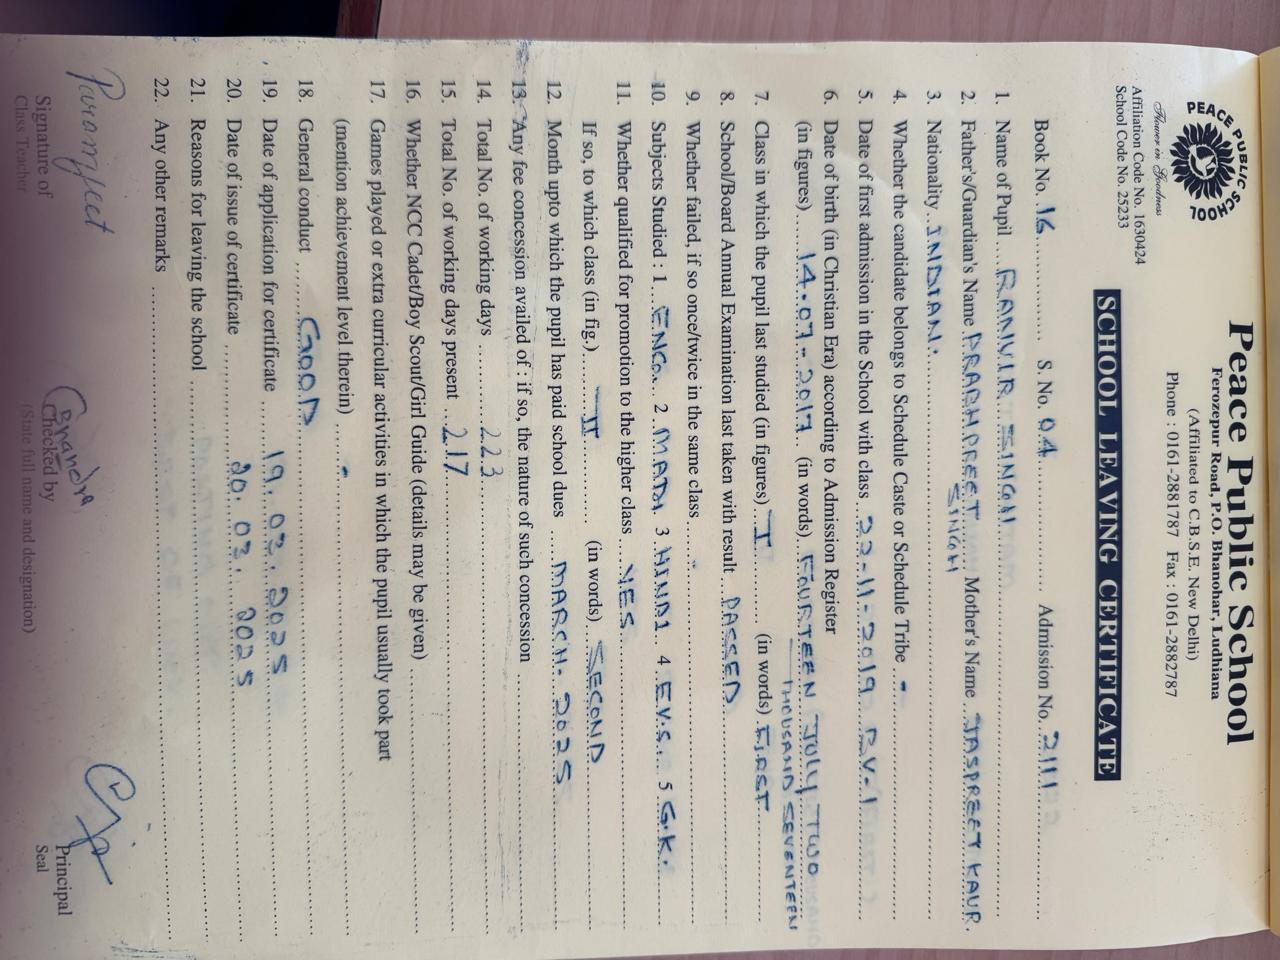 PEACE PUBLIC SCHOOL
Flower in Goodness
Affiliation Code No. 1630424
School Code No. 25233
Peace Public School
Ferozepur Road, P.O. Bhanohar, Ludhiana
(Affiliated to C.B.S.E. New Delhi)
Phone : 0161-2881787 Fax : 0161-2882787
SCHOOL LEAVING CERTIFICATE
Book No. 16 S. No. 04 Admission No. 2111
1. Name of Pupil RANVIR SINGH
2. Father's/Guardian's Name PRABHPREET SINGH Mother's Name JASPREET KAUR.
3. Nationality INDIAN.
4. Whether the candidate belongs to Schedule Caste or Schedule Tribe -
5. Date of first admission in the School with class 22-11-2019
6. Date of birth (in Christian Era) according to Admission Register
(in figures) 14.07-2017 (in words) FOURTEEN JULY TWO
THOUSAND SEVENTEEN
7. Class in which the pupil last studied (in figures) I (in words) FIRST
8. School/Board Annual Examination last taken with result PASSED
9. Whether failed, if so once/twice in the same class -
10. Subjects Studied : 1 ENG. 2 MATH 3 HINDI 4 E.V.S. 5 G.K.
11. Whether qualified for promotion to the higher class YES
If so, to which class (in fig.) II (in words) SECOND
12. Month upto which the pupil has paid school dues MARCH. 2025
13. Any fee concession availed of : if so, the nature of such concession
14. Total No. of working days 223
15. Total No. of working days present 217
16. Whether NCC Cadet/Boy Scout/Girl Guide (details may be given)
17. Games played or extra curricular activities in which the pupil usually took part
(mention achievement level therein) -
18. General conduct GOOD
19. Date of application for certificate 19.03.2025
20. Date of issue of certificate 20.03.2025
21. Reasons for leaving the school
22. Any other remarks
Paramjeet
Signature of
Class Teacher
Chandra
Checked by
(State full name and designation)
Principal
Seal